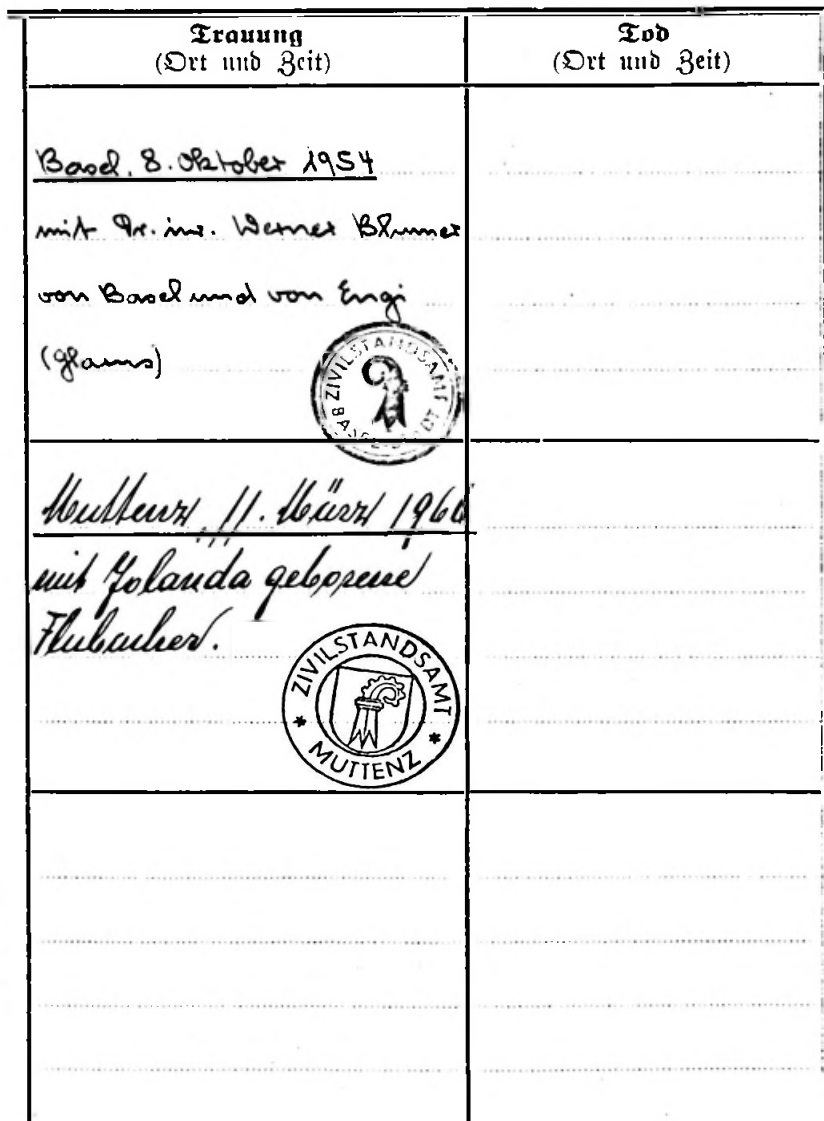 Trauung
(Ort und Zeit)
Tod
(Ort und Zeit)
Basel, 8. Oktober 1954
mit Dr. iur. Werner Blumer
von Basel und von Engi
(Glarus)
ZIVILSTANDSAMT
BASEL-STADT
Muttenz, 11. März 1960
mit Jolanda geborene
Flubacher.
ZIVILSTANDSAMT
* MUTTENZ *